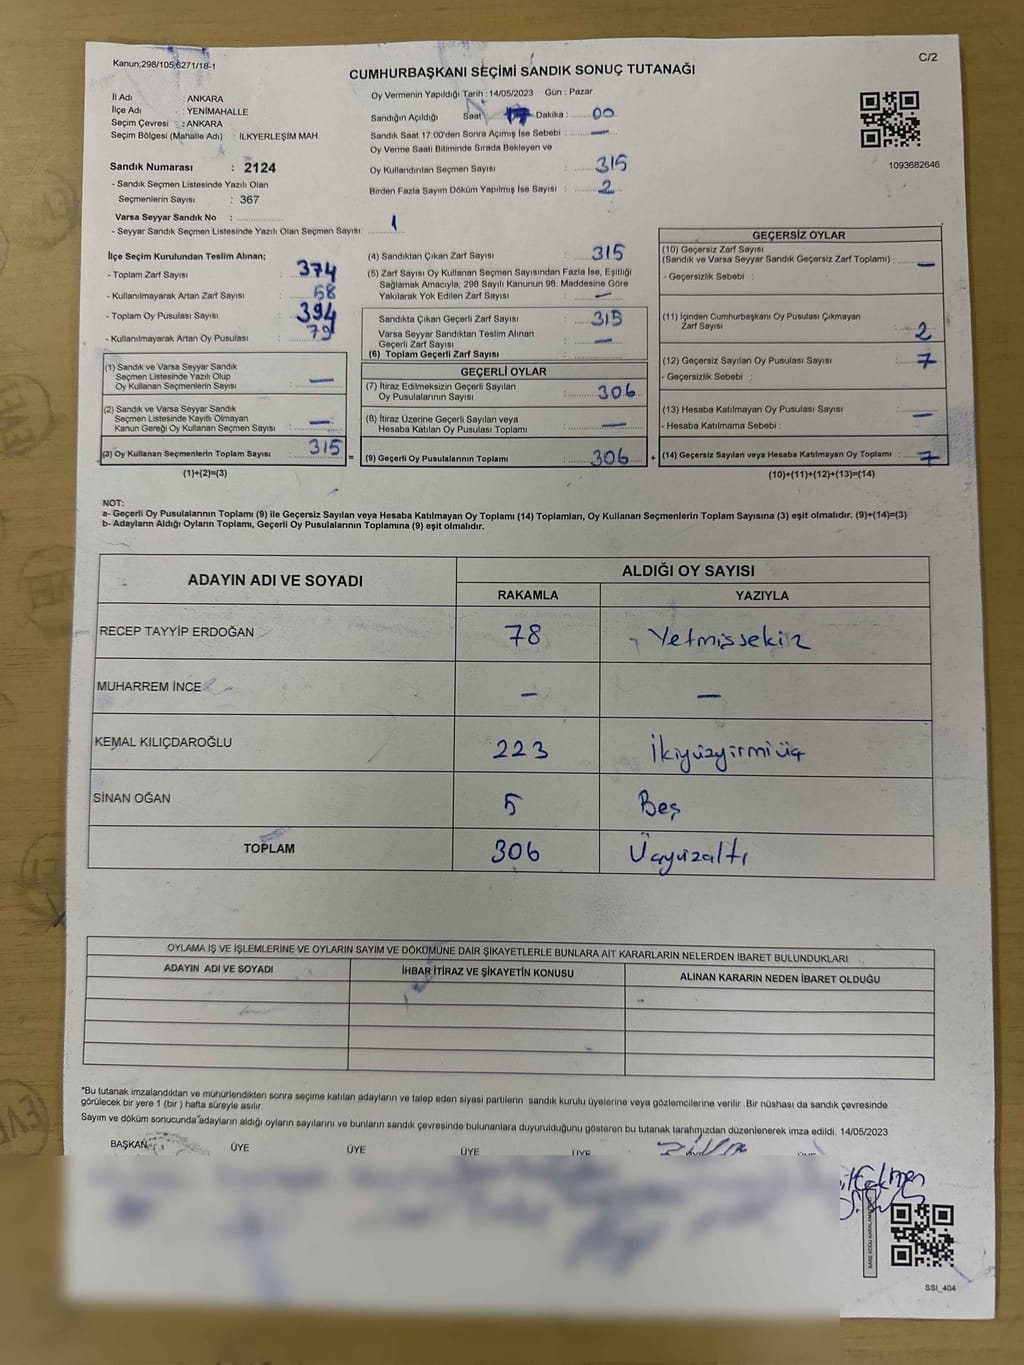 Kanun;298/105,6271/18-1
C/2
CUMHURBAŞKANI SEÇİMİ SANDIK SONUÇ TUTANAĞI
İl Adı : ANKARA
İlçe Adı : YENİMAHALLE
Seçim Çevresi : ANKARA
Seçim Bölgesi (Mahalle Adı) : İLKYERLEŞİM MAH.
Sandık Numarası : 2124
- Sandık Seçmen Listesinde Yazılı Olan
Seçmenlerin Sayısı : 367
Varsa Seyyar Sandık No :
- Seyyar Sandık Seçmen Listesinde Yazılı Olan Seçmen Sayısı: 1
Oy Vermenin Yapıldığı Tarih : 14/05/2023 Gün : Pazar
Sandığın Açıldığı Saat : 17 Dakika : 00
Sandık Saat 17:00'den Sonra Açımış İse Sebebi : —
Oy Verme Saati Bitiminde Sırada Bekleyen ve
Oy Kullandırılan Seçmen Sayısı : 315
Birden Fazla Sayım Döküm Yapılmış İse Sayısı : 2
1093682646
İlçe Seçim Kurulundan Teslim Alınan;
- Toplam Zarf Sayısı : 374
- Kullanılmayarak Artan Zarf Sayısı : 58
- Toplam Oy Pusulası Sayısı : 394
- Kullanılmayarak Artan Oy Pusulası : 79
(1) Sandık ve Varsa Seyyar Sandık
Seçmen Listesinde Yazılı Olup
Oy Kullanan Seçmenlerin Sayısı : —
(2) Sandık ve Varsa Seyyar Sandık
Seçmen Listesinde Kayıtlı Olmayan
Kanun Gereği Oy Kullanan Seçmen Sayısı : —
(3) Oy Kullanan Seçmenlerin Toplam Sayısı : 315 =
(1)+(2)=(3)
(4) Sandıktan Çıkan Zarf Sayısı : 315
(5) Zarf Sayısı Oy Kullanan Seçmen Sayısından Fazla İse, Eşitliği
Sağlamak Amacıyla, 298 Sayılı Kanunun 98. Maddesine Göre
Yakılarak Yok Edilen Zarf Sayısı : —
Sandıkta Çıkan Geçerli Zarf Sayısı : 315
Varsa Seyyar Sandıktan Teslim Alınan
Geçerli Zarf Sayısı : —
(6) Toplam Geçerli Zarf Sayısı
GEÇERLİ OYLAR
(7) İtiraz Edilmeksizin Geçerli Sayılan
Oy Pusulalarının Sayısı : 306
(8) İtiraz Üzerine Geçerli Sayılan veya
Hesaba Katılan Oy Pusulası Toplamı : —
(9) Geçerli Oy Pusulalarının Toplamı : 306 +
GEÇERSİZ OYLAR
(10) Geçersiz Zarf Sayısı
(Sandık ve Varsa Seyyar Sandık Geçersiz Zarf Toplamı) : —
- Geçersizlik Sebebi :
(11) İçinden Cumhurbaşkanı Oy Pusulası Çıkmayan
Zarf Sayısı : 2
(12) Geçersiz Sayılan Oy Pusulası Sayısı : 7
- Geçersizlik Sebebi :
(13) Hesaba Katılmayan Oy Pusulası Sayısı : —
- Hesaba Katılmama Sebebi :
(14) Geçersiz Sayılan veya Hesaba Katılmayan Oy Toplamı : 7
(10)+(11)+(12)+(13)=(14)
NOT:
a- Geçerli Oy Pusulalarının Toplamı (9) ile Geçersiz Sayılan veya Hesaba Katılmayan Oy Toplamı (14) Toplamları, Oy Kullanan Seçmenlerin Toplam Sayısına (3) eşit olmalıdır. (9)+(14)=(3)
b- Adayların Aldığı Oyların Toplamı, Geçerli Oy Pusulalarının Toplamına (9) eşit olmalıdır.
ADAYIN ADI VE SOYADI ALDIĞI OY SAYISI
RAKAMLA YAZIYLA
RECEP TAYYİP ERDOĞAN 78 Yetmişsekiz
MUHARREM İNCE — —
KEMAL KILIÇDAROĞLU 223 İkiyüzyirmiüç
SİNAN OĞAN 5 Beş
TOPLAM 306 Üçyüzaltı
OYLAMA İŞ VE İŞLEMLERİNE VE OYLARIN SAYIM VE DÖKÜMÜNE DAİR ŞİKAYETLERLE BUNLARA AİT KARARLARIN NELERDEN İBARET BULUNDUKLARI
ADAYIN ADI VE SOYADI İHBAR İTİRAZ VE ŞİKAYETİN KONUSU ALINAN KARARIN NEDEN İBARET OLDUĞU
*Bu tutanak imzalandıktan ve mühürlendikten sonra seçime katılan adayların ve talep eden siyasi partilerin sandık kurulu üyelerine veya gözlemcilerine verilir. Bir nüshası da sandık çevresinde
görülecek bir yere 1 (bir) hafta süreyle asılır.
Sayım ve döküm sonucunda adayların aldığı oyların sayılarını ve bunların sandık çevresinde bulunanlara duyurulduğunu gösteren bu tutanak tarafımızdan düzenlenerek imza edildi. 14/05/2023
BAŞKAN ÜYE ÜYE ÜYE ÜYE
SSI_404